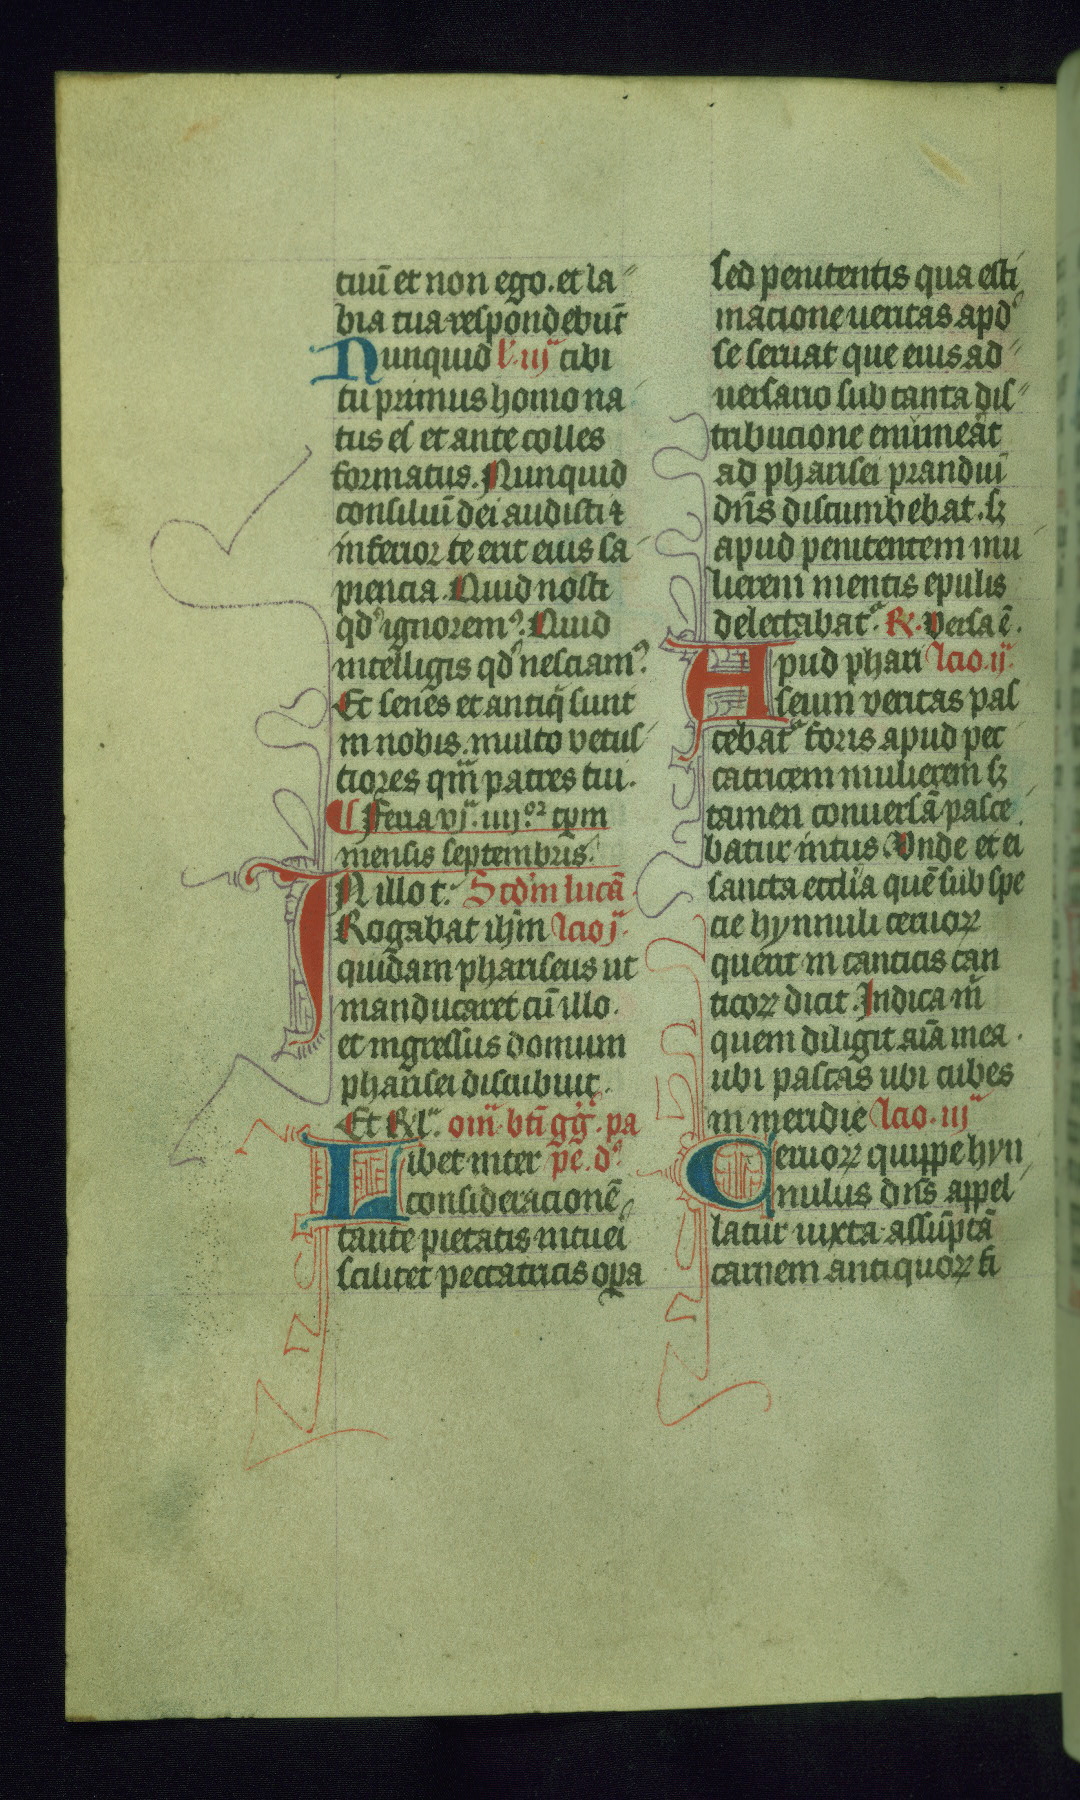 tuū et non ego. et la
bia tua respondebūt
Nunquid l'. iij tibi
tu primus homo na
tus es et ante colles
formatus. Nunquid
consiliū dei audisti ⁊
inferior te erit eius sa
piencia. Quid nosti
qd' ignorem⁹. Quid
intelligis qd' nesciam⁹
Et senes et antiq̄ sunt
in nobis. multo vetus
tiores qm̄ patres tui.
¶ Feria vj. iiij.or tp̄m
mensis septembris.
IN illo t. Scd'm lucā
Rogabat ih̄m lcio j.
quidam phariseus ut
manducaret cū illo.
et ingressus domum
pharisei discubuit.
Et Rl. om̄ bt̄i gḡ. pa
Libet inter pe. d'.
consideracionē
tante pietatis intuei
scilicet peccatricis op̄a
sed penitentis qua esti
macione ueritas apd'
se seruat que eius ad
uersario sub tanta dis
tribucione enūmeāt
ad pharisei prandiū
dn̄s discumbebat. sꝫ
apud penitentem mu
lierem mentis epulis
delectabat. R. Versa ē.
Apud phari lcio. ij.
seum veritas pas
cebat foris apud pec
catricem mulierem sꝫ
tamen conuersā pasce
batur intus. Vnde et ei
sancta eccl'ia quē sub spe
cie hynnuli ceruoꝝ
querit in canticis can
ticoꝝ dicit. Indica m̄
quem diligit aīa mea.
ubi pascas ubi cubes
in meridie lcio. iij
Ceruoꝝ quippe hyn
nulus dn̄s appel
latur iuxta assūptā
carnem antiquoꝝ fi